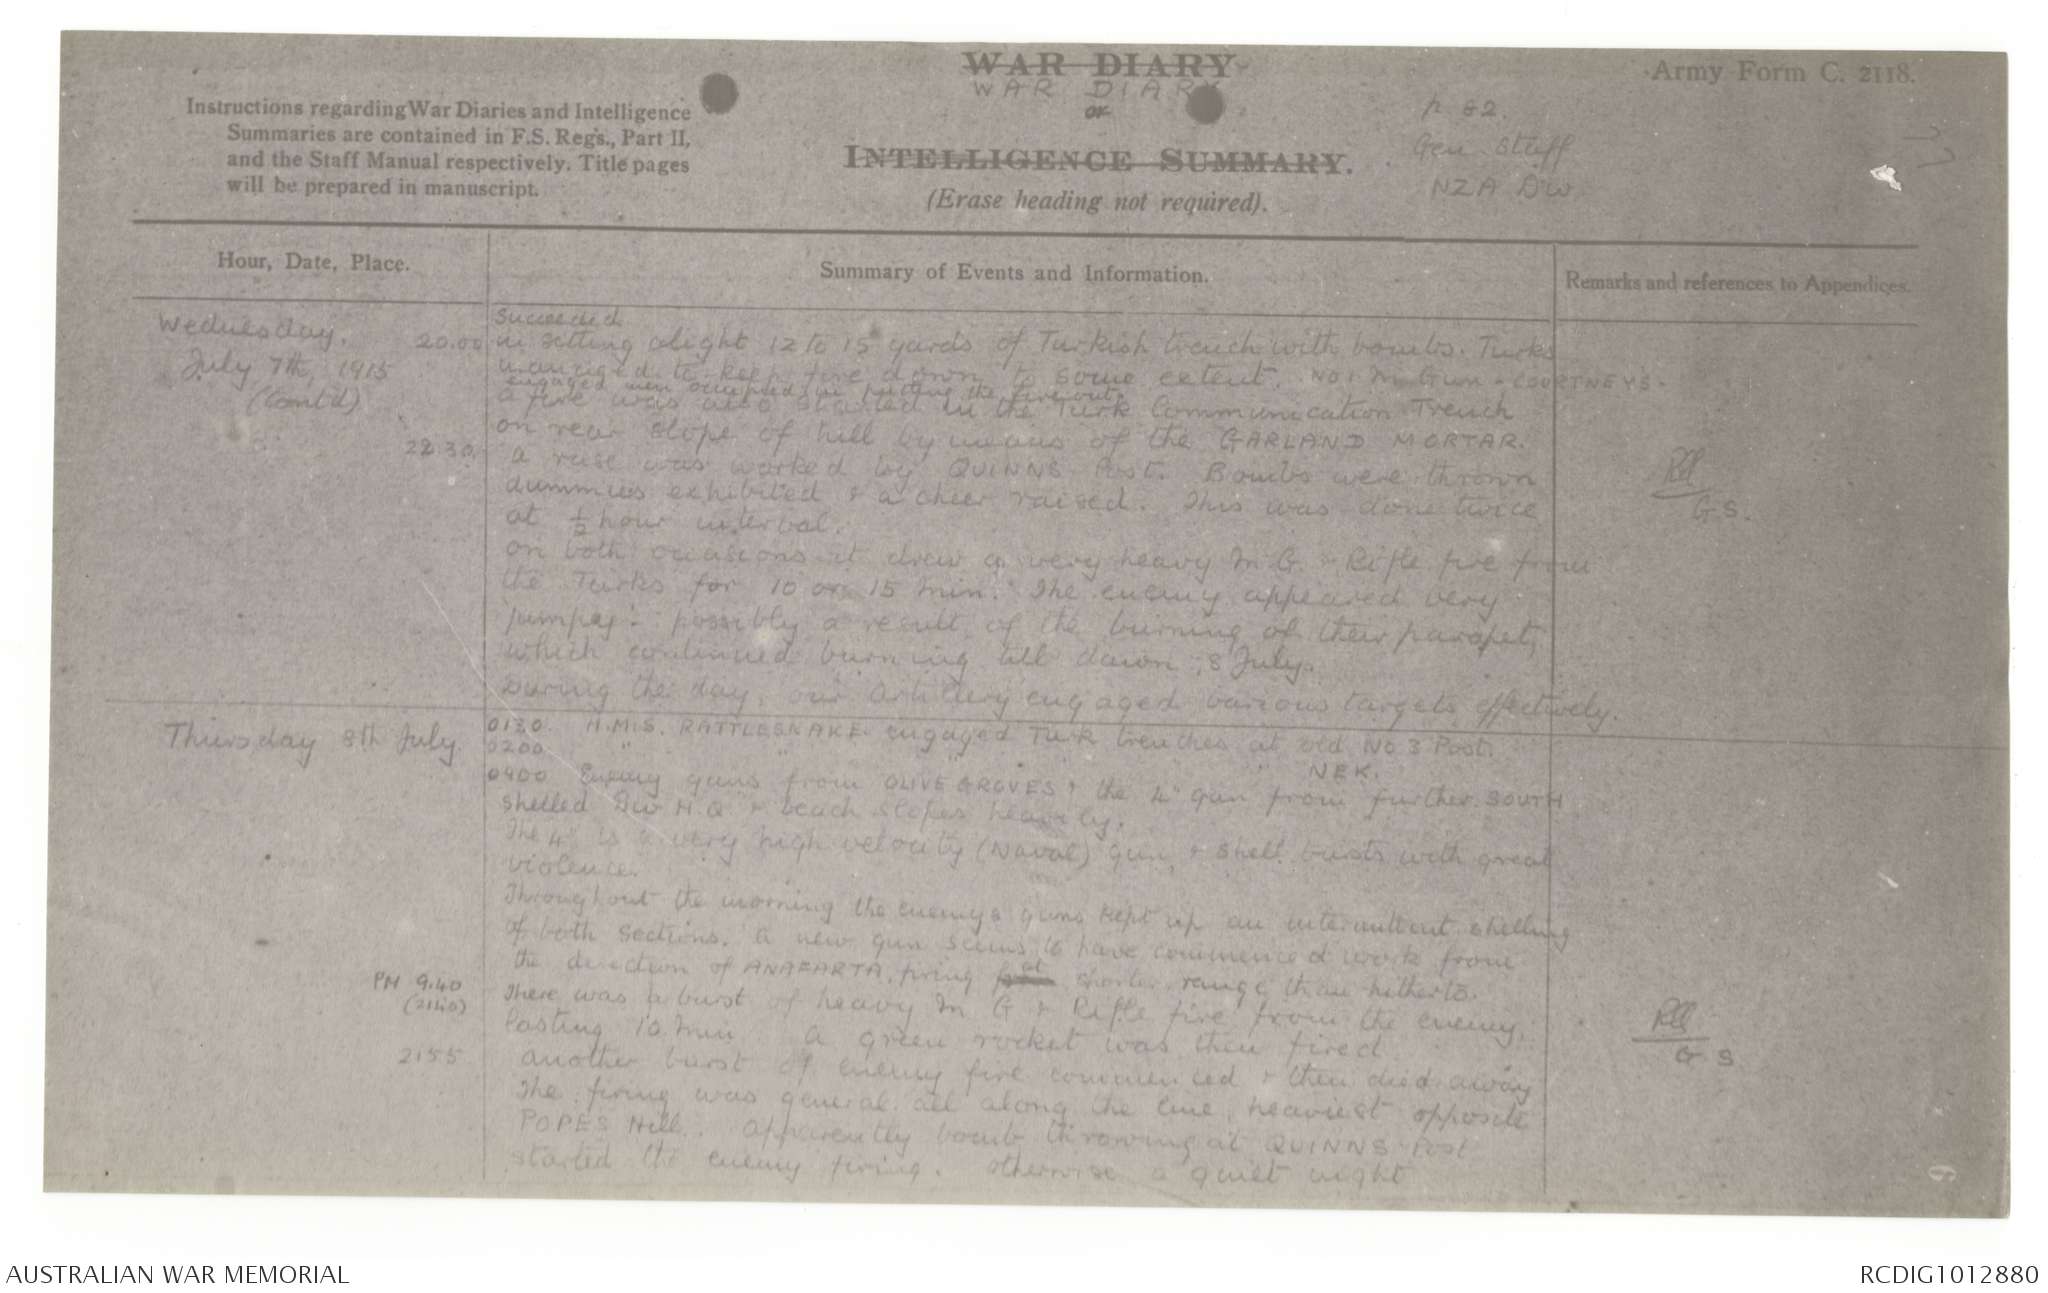 WAR DIARY
WAR DIARY
or
INTELLIGENCE SUMMARY.
(Erase heading not required).
Army Form C. 2118.
Instructions regarding War Diaries and Intelligence
Summaries are contained in F.S. Regs., Part II,
and the Staff Manual respectively. Title pages
will be prepared in manuscript.
p 82.
Gen Staff
NZA Div
Hour, Date, Place.
Summary of Events and Information.
Remarks and references to Appendices.
Wednesday.
July 7th, 1915
(Contd)
Succeeded
20.00 in setting alight 12 to 15 yards of Turkish trench with bombs. Turks
managed to keep fire down to some extent. No 1 M Gun - COURTNEYS -
engaged men occupied in putting the fire out.
a fire was also started in the Turk Communication Trench
on rear slope of hill by means of the GARLAND MORTAR.
22 30 a ruse was worked by QUINNS Post. Bombs were thrown
dummies exhibited & a cheer raised. This was done twice
at ½ hour interval.
on both occasions it drew a very heavy M G. & Rifle fire from
the Turks for 10 or 15 min. The enemy appeared very
jumpy: possibly a result of the burning of their parapet,
which continued burning till dawn, 8 July.
During the day, our Artillery engaged various targets effectively.
Rll
G.S.
Thursday 8th July.
0130 H.M.S. RATTLESNAKE engaged Turk trenches at old No 3 Post.
0200 " " " " " NEK.
0400 Enemy guns from OLIVE GROVES, & the 4" gun from further SOUTH
shelled Div H.Q. & beach slopes heavily.
The 4" is a very high velocity (Naval) gun, & shell bursts with great
violence.
Throughout the morning the enemys guns kept up an intermittent shelling
of both sections. A new gun seems to have commenced work from
the direction of ANAFARTA, firing at shorter range than hitherto.
PM 9.40 There was a burst of heavy M G & Rifle fire from the enemy,
(2140) lasting 10 min a green rocket was then fired.
2155 another burst of enemy fire commenced & then died away
The firing was general all along the line, heaviest opposite
POPES Hill. Apparently bomb throwing at QUINNS Post
started the enemy firing. Otherwise a quiet night
Rll
G S
AUSTRALIAN WAR MEMORIAL
RCDIG1012880